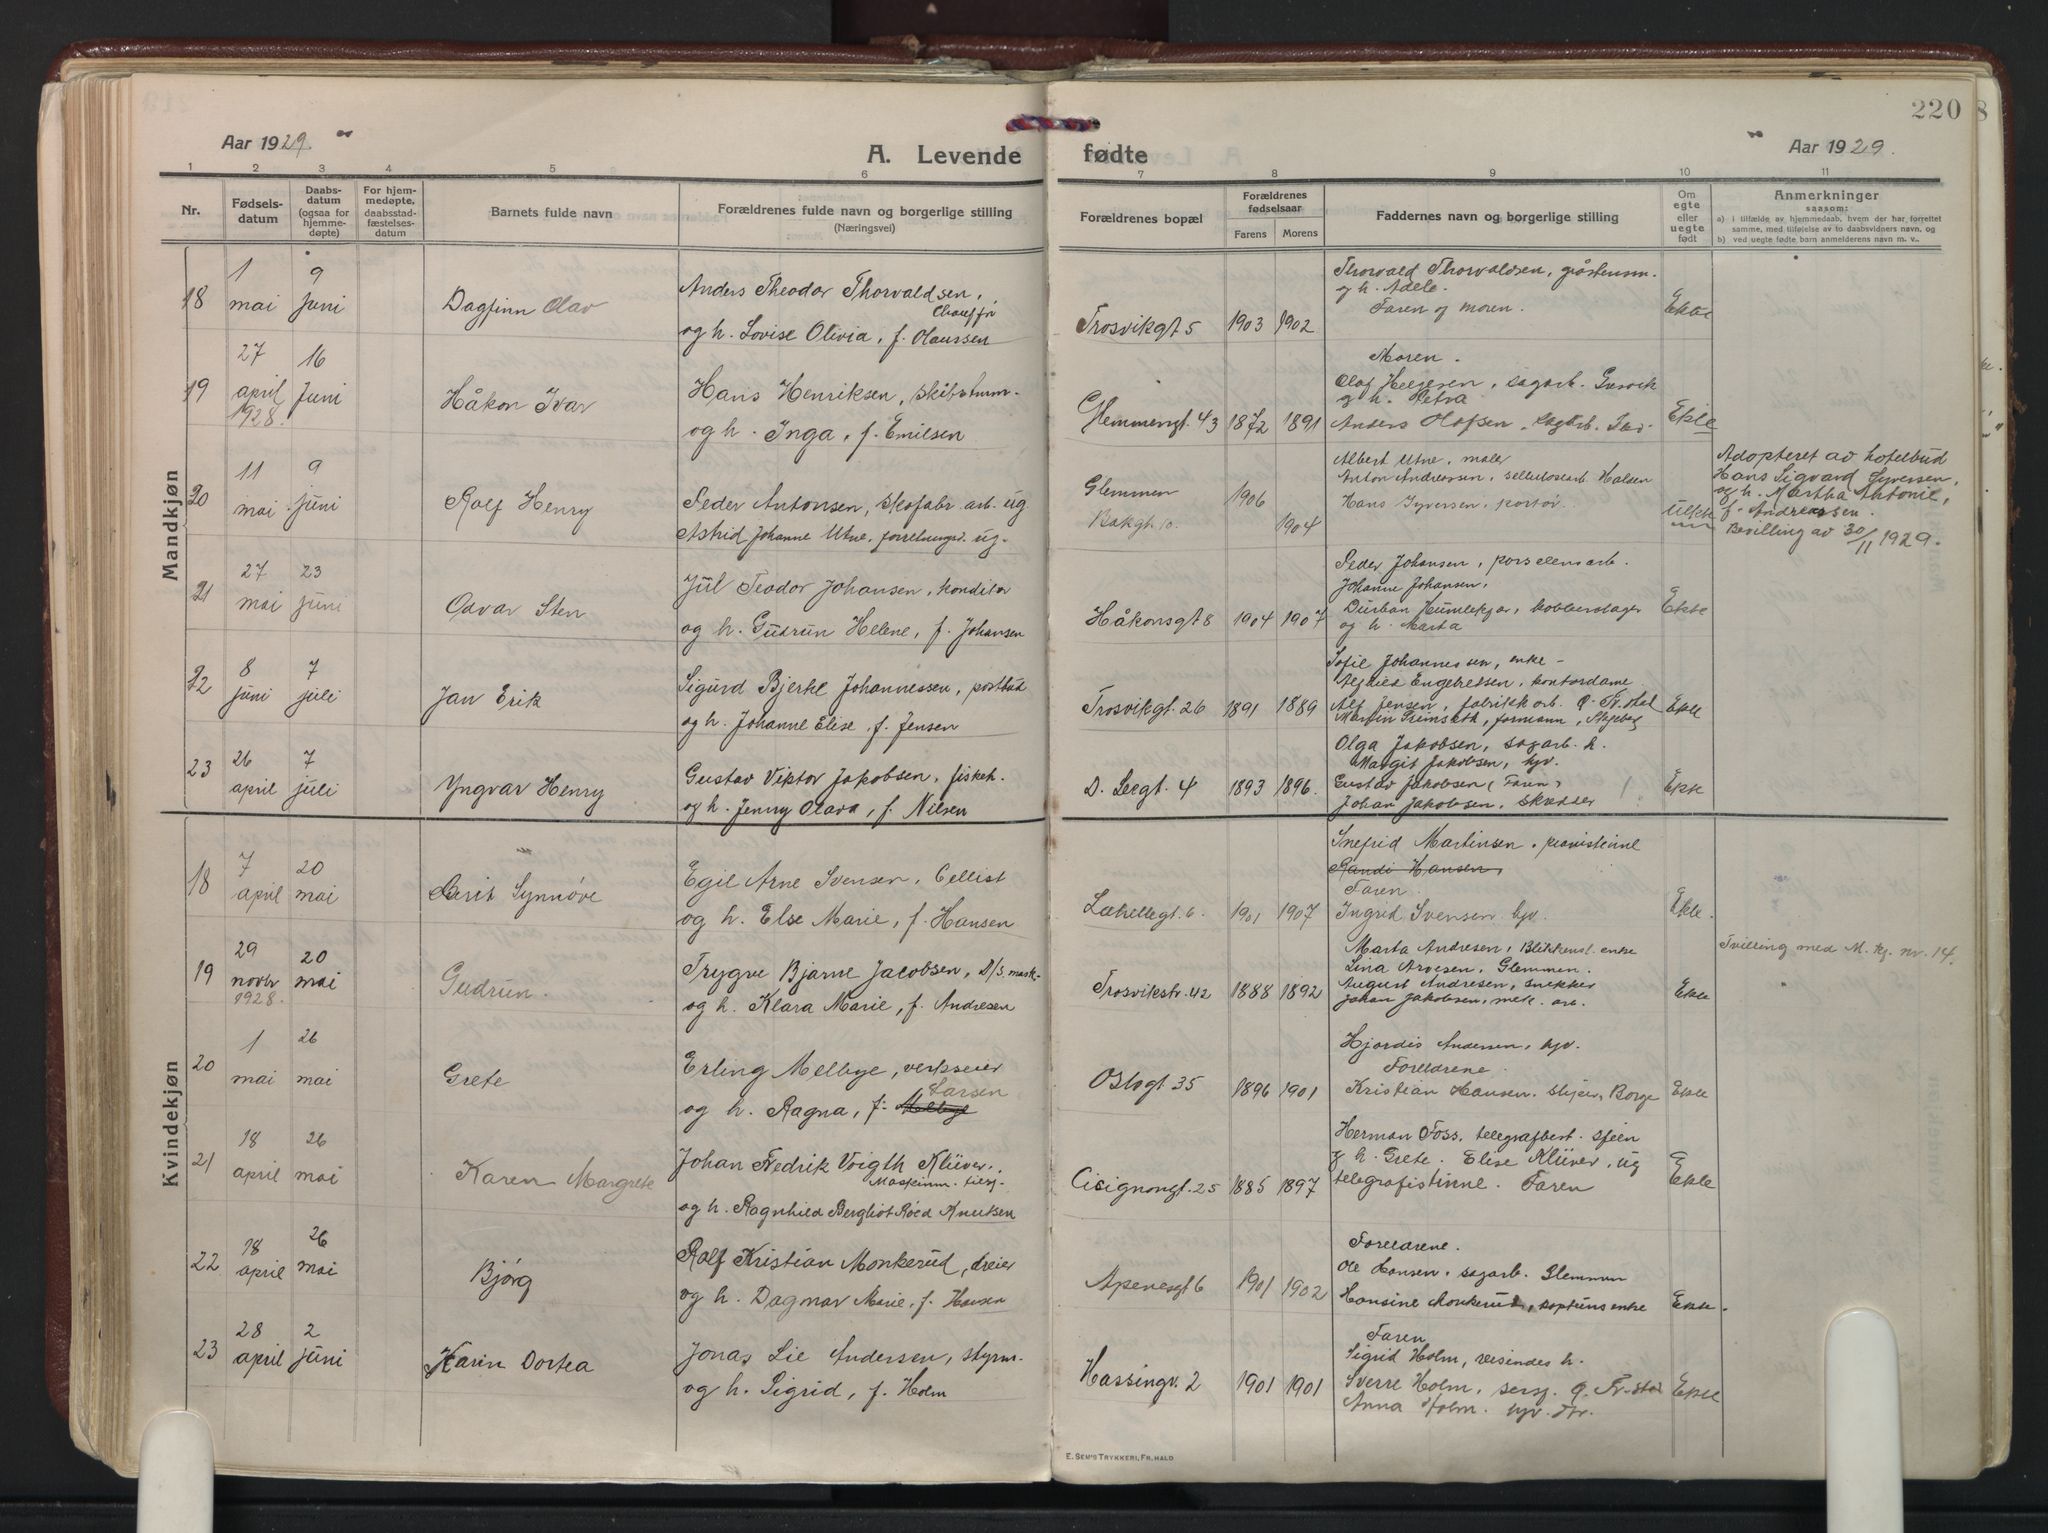 220
8
Aar 1929.
A. Levende
fødte
Aar 1929.
1 2 3 4 5 6 7 8 9 10 11
Nr.
Fødsels-
datum
Daabs-
datum
(ogsaa for
hjemme-
døpte)
For hjem-
medøpte,
daabsstad-
fæstelses-
datum
Barnets fulde navn
Forældrenes fulde navn og borgerlige stilling
(Næringsvei)
Forældrenes bopæl
Forældrenes
fødselsaar
Farens Morens
Faddernes navn og borgerlige stilling
Om
egte
eller
uegte
født
Anmerkninger
saasom:
a) i tilfælde av hjemmedaab, hvem der har forrettet
samme, med tilføielse av to daabsvidners navn, og
b) ved uegte fødte barn anmelderens navn m. v..
Mandkjøn
18
1
mai
9
juni
Dagfinn Olav
Anders Theodor Thorvaldsen,
Chauffør
og h. Lovise Olivia, f. Olaussen
Trosvikgt 5
1903 1902
Thorvald Thorvaldsen,
og h. Adele.
Faren og moren.
Ekte
19
27
april
1928.
16
Juni
Håkon Ivar
Hans Henriksen, skibstøm-
og h. Inga, f. Emilsen
Glemmengt. 43
1872 1891
Moren.
Olaf Helgesen, sagarb.
og h. Petra
Anders Olafsen, sagarb.
Ekte
20
11
mai
9
juni
Rolf Henry
Peder Antonsen, skofabr. arb. ug
Astrid Johanne Utne, forretningsd. ug.
Glemmen
Bakgt. 10.
1906
1904
Albert Utne, maler
Anton Andreassen, sellulosearb. Halsen
Hans Syversen, portør.
Uekte
Adopteret av hotelbud
Hans Sigvard Syversen,
og h. Martha Antonie,
f. Andreassen.
Bevilling av 30/11 1929.
21
27
mai
23
juni
Odvar Sten
Jul Teodor Johansen, konditor
og h. Gudrun Helene, f. Johansen
Håkonsgt 8
1904 1907
Peder Johansen, porselensarb.
Johanne Johansen,
Durban Humlekjær, kobberslager
og h. Marta
Ekte
22
8
juni
7
juli
Jan Erik
Sigurd Bjerke Johannessen, postbud
og h. Johanne Elise, f. Jensen
Trosvikgt. 26
1891 1889
Sofie Johannessen, enke -
Engebretsen, kontordame
Alf Jensen, fabrikk arb. Q. Fr.stad
Martin Grimseth, formann,
Ekte
23
26
april
7
juli
Yngvar Henry
Gustav Viktor Jakobsen, fiskeh.
og h. Jenny Olava, f. Nilsen
D. Leegt. 4
1893 1896.
Olga Jakobsen, sagarb. h.
Margit Jakobsen, hjv.
Gustav Jakobsen (Faren)
Johan Jakobsen, skrædder
Ekte
Kvindekjøn
18
7
april
20
mai
Berit Synnøve
Egil Arne Svensen, Cellist
og h. Else Marie, f. Hansen
Lahellegt. 6.
1901 1907
Snefrid Martinsen, pianistinne
Randi Hansen,
Faren.
Ingrid Svensen hjv.
Ekte.
19
29
novbr
1928.
20
mai
Gudrun.
Trygve Bjarne Jacobsen, D/S. mask-
og h. Klara Marie, f. Andresen
Trosvikstr. 42
1888 1892
Marta Andresen, Blikkensl. enke
Lina Arvesen, Glemmen.
August Andresen, snekker
Johan Jakobsen, mek. arb.
Ekte
Tvilling med M. kj. nr. 14.
20
1
mai
26
mai
Grete
Erling Melbye, verkseier
Larsen
og h. Ragna, f. Melbye
Oslogt 35
1896 1901
Hjørdis Andersen, hjv.
Foreldrene.
Kristian Hansen, Borge
Ekte
21
18
april
26
mai
Karen Margrete
Johan Fredrik Voigth Klüver.
Maskinm.
og h. Ragnhild Bergliot Røed Knutsen
Cicignongt. 25
1885 1897
Herman Foss, telegrafbest. Skien
og h. Grete. Elise Klüver, ug
telegrafistinne. Faren
Ekte
22
18
april
26
mai
Bjørg
Rolf Kristian Monkerud, dreier
og h. Dagmar Marie, f. Hansen
Apenesgt 6
1901 1902
Foreldrene.
Ole Hansen, sagarb. Glemmen
Hansine Monkerud, kapteins enke
Ekte.
23
28
april
2
juni
Karin Dortea
Jonas Lie Andersen, styrm.
og h. Sigrid, f. Holm
Hassingv. 2
1901 1901
Faren
Sigrid Holm, h.
Sverre Holm, sersj. Q. Fr.stad
Anna Holm. hjv. Fr.
Ekte
E. SEM'S TRYKKERI, FR.HALD